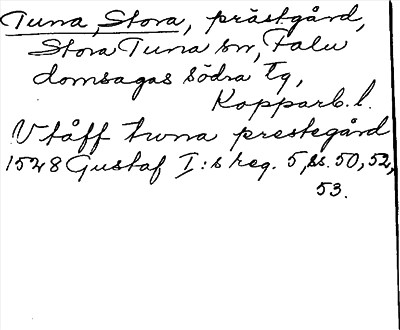 Tuna, Stora, prästgård,
Stora Tuna sn, Falu
domsagas södra tg,
Kopparb. l.
V tåff tuna prestegård
1528 Gustaf I:s reg. 5, ss. 50, 52,
53.